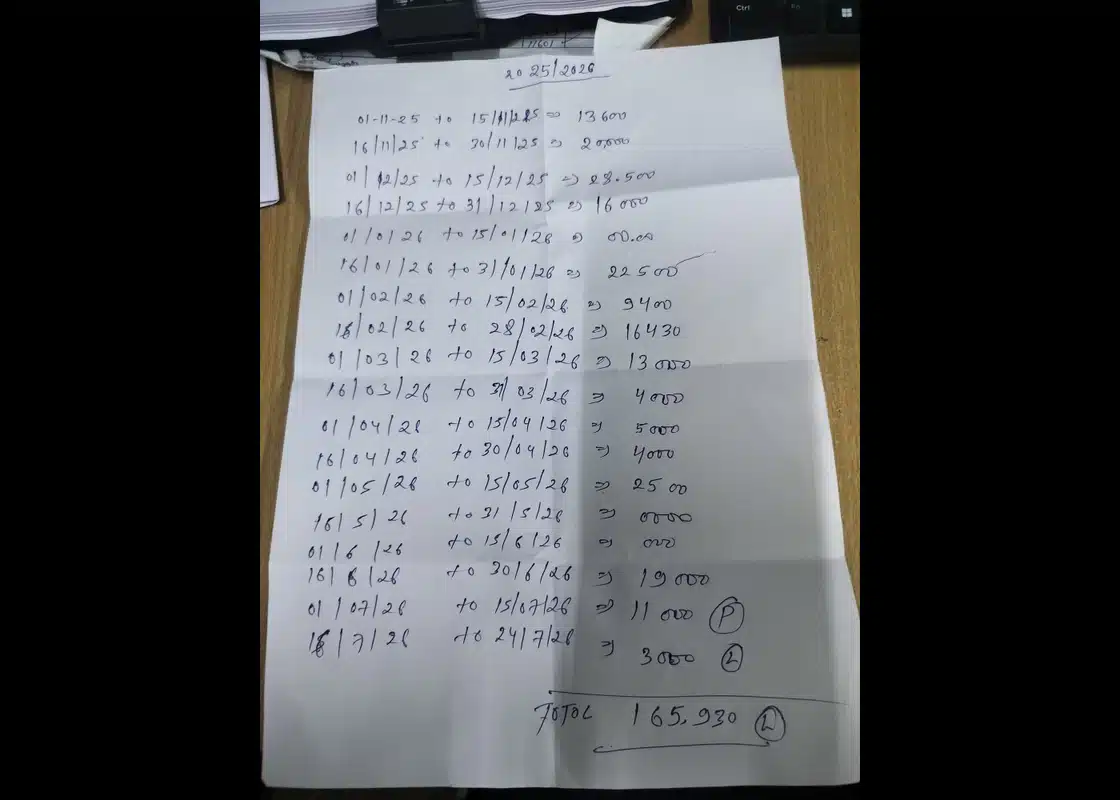 Ctrl
Fn
11601
2025/2026
01-11-25 to 15/11/25 ⇒ 13600
16/11/25 to 30/11/25 ⇒ 20,000
01/12/25 to 15/12/25 ⇒ 28.500
16/12/25 to 31/12/25 ⇒ 16000
01/01/26 to 15/01/26 ⇒ 00.00
16/01/26 to 31/01/26 ⇒ 22500
01/02/26 to 15/02/26 ⇒ 9400
16/02/26 to 28/02/26 ⇒ 16430
01/03/26 to 15/03/26 ⇒ 13000
16/03/26 to 31/03/26 ⇒ 4000
01/04/26 to 15/04/26 ⇒ 5000
16/04/26 to 30/04/26 ⇒ 4000
01/05/26 to 15/05/26 ⇒ 2500
16/5/26 to 31/5/26 ⇒ 0000
01/6/26 to 15/6/26 ⇒ 000
16/6/26 to 30/6/26 ⇒ 19000
01/07/26 to 15/07/26 ⇒ 11000 P
16/7/26 to 24/7/26 ⇒ 3000 L
TOTOL 165,930 L